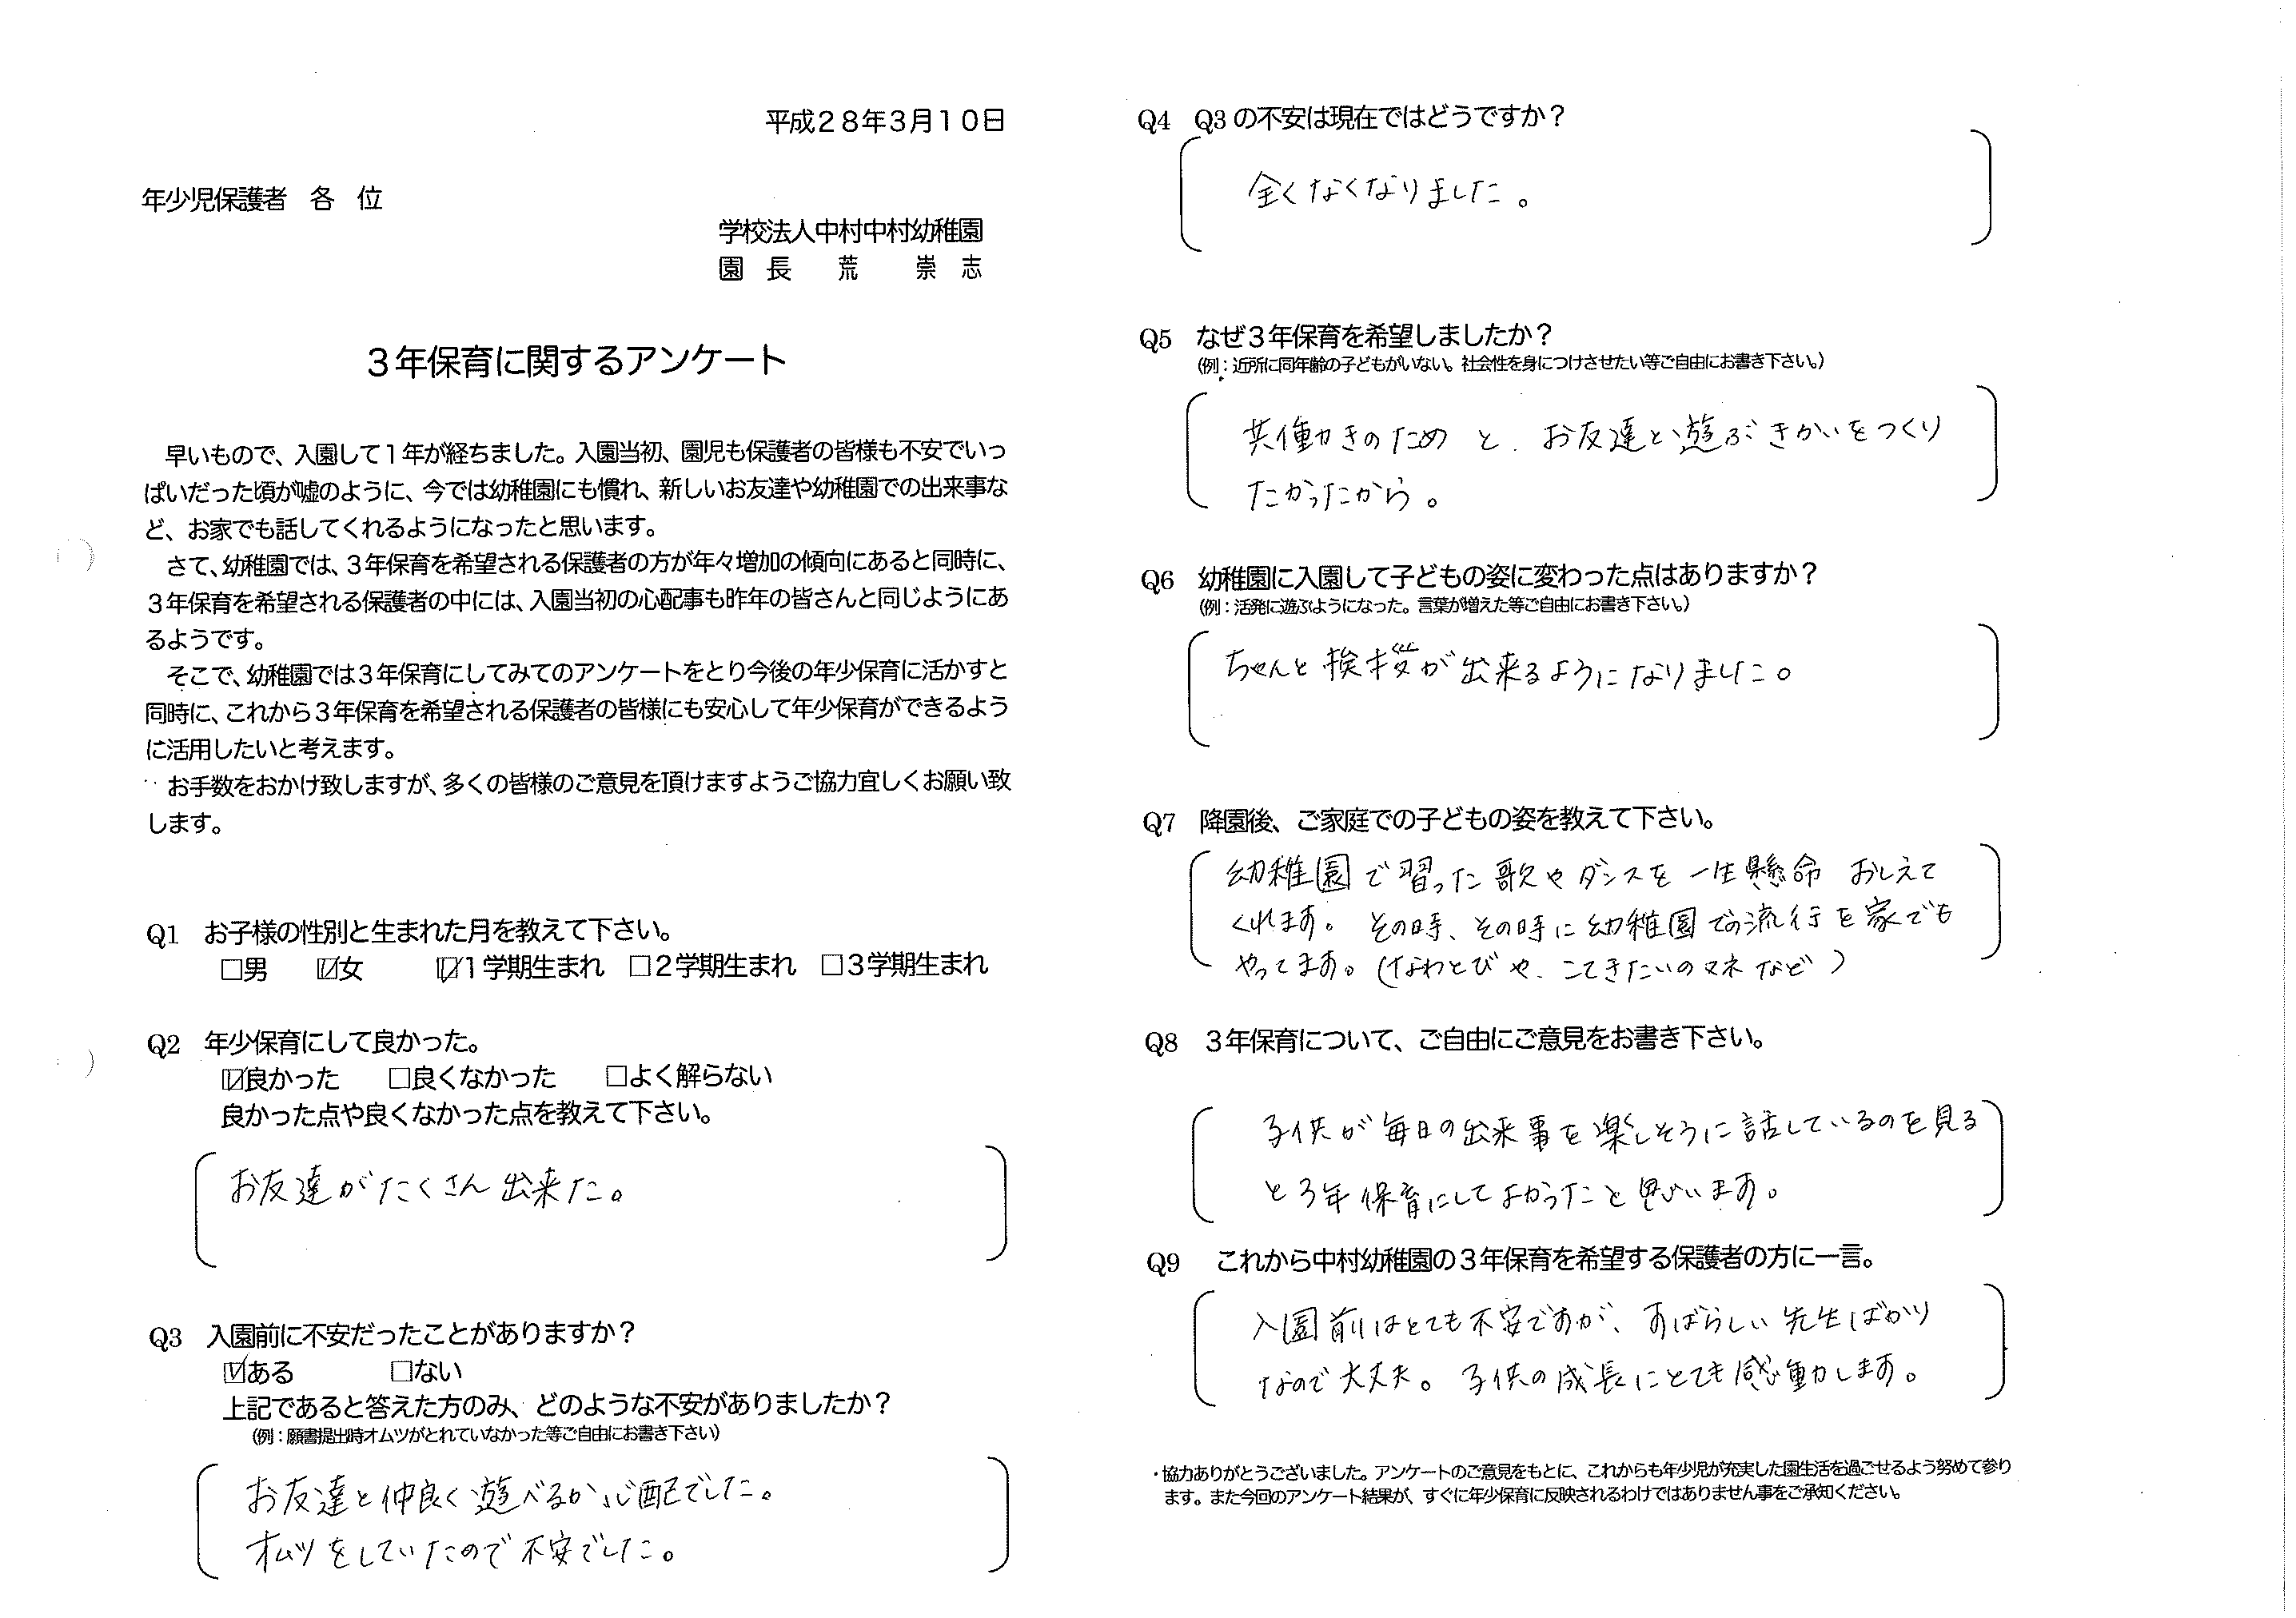 平成28年3月10日
年少児保護者 各 位
学校法人中村中村幼稚園
園 長 荒 崇 志
3年保育に関するアンケート
早いもので、入園して1年が経ちました。入園当初、園児も保護者の皆様も不安でいっ
ぱいだった頃が嘘のように、今では幼稚園にも慣れ、新しいお友達や幼稚園での出来事な
ど、お家でも話してくれるようになったと思います。
さて、幼稚園では、3年保育を希望される保護者の方が年々増加の傾向にあると同時に、
3年保育を希望される保護者の中には、入園当初の心配事も昨年の皆さんと同じようにあ
るようです。
そこで、幼稚園では3年保育にしてみてのアンケートをとり今後の年少保育に活かすと
同時に、これから3年保育を希望される保護者の皆様にも安心して年少保育ができるよう
に活用したいと考えます。
お手数をおかけ致しますが、多くの皆様のご意見を頂けますようご協力宜しくお願い致
します。
Q1 お子様の性別と生まれた月を教えて下さい。
□男 ☑女 ☑1学期生まれ □2学期生まれ □3学期生まれ
Q2 年少保育にして良かった。
☑良かった □良くなかった □よく解らない
良かった点や良くなかった点を教えて下さい。
お友達がたくさん出来た。
Q3 入園前に不安だったことがありますか？
☑ある □ない
上記であると答えた方のみ、どのような不安がありましたか？
（例：願書提出時オムツがとれていなかった等ご自由にお書き下さい）
お友達と仲良く遊べるか心配でした。
オムツをしていたので不安でした。
Q4 Q3の不安は現在ではどうですか？
全くなくなりました。
Q5 なぜ3年保育を希望しましたか？
（例：近所に同年齢の子どもがいない。社会性を身につけさせたい等ご自由にお書き下さい。）
共働きのためと、お友達と遊ぶきかいをつくり
たかったから。
Q6 幼稚園に入園して子どもの姿に変わった点はありますか？
（例：活発に遊ぶようになった。言葉が増えた等ご自由にお書き下さい。）
ちゃんと挨拶が出来るようになりました。
Q7 降園後、ご家庭での子どもの姿を教えて下さい。
幼稚園で習った歌やダンスを一生懸命おしえて
くれます。その時、その時に幼稚園での流行を家でも
やってます。（なわとびや、こてきたいのマネなど）
Q8 3年保育について、ご自由にご意見をお書き下さい。
子供が毎日の出来事を楽しそうに話しているのを見る
と3年保育にしてよかったと思います。
Q9 これから中村幼稚園の3年保育を希望する保護者の方に一言。
入園前はとても不安ですが、すばらしい先生ばかり
なので大丈夫。子供の成長にとても感動します。
・協力ありがとうございました。アンケートのご意見をもとに、これからも年少児が充実した園生活を過ごせるよう努めて参り
ます。また今回のアンケート結果が、すぐに年少保育に反映されるわけではありません事をご承知ください。